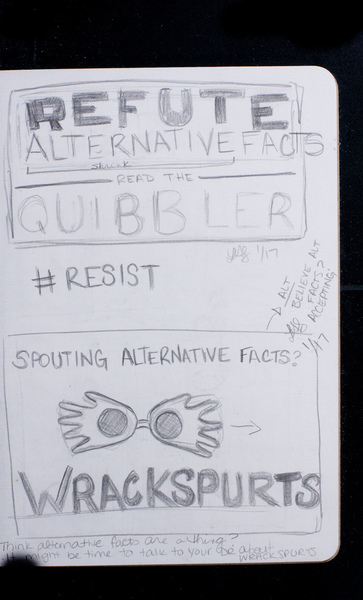 REFUTE
ALTERNATIVE FACTS
shrink
READ THE
QUIBBLER
1/17
# RESIST
→ ALT
BELIEVE ALT
FACTS?
ACCEPTING?
1/17
SPOUTING ALTERNATIVE FACTS?
→
WRACKSPURTS
Think alternative facts are a thing?
It might be time to talk to your about
WRACKSPURTS